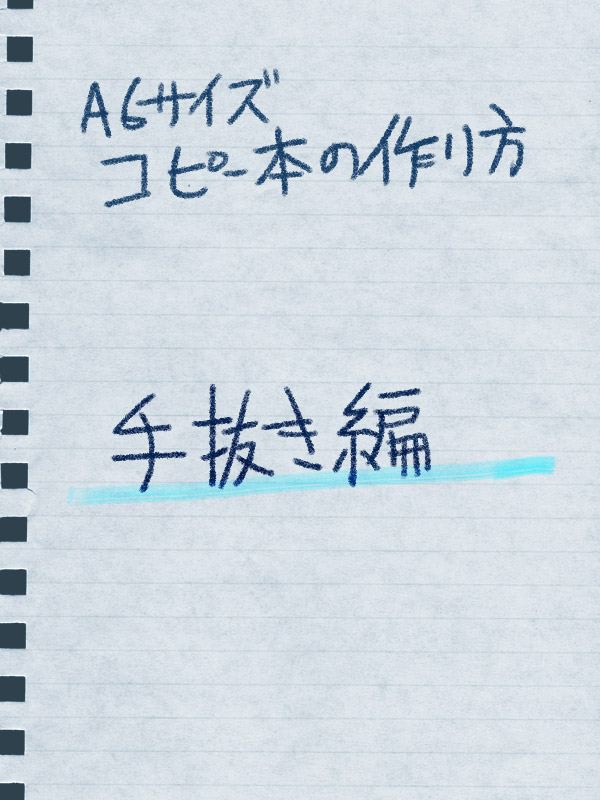 A6サイズ
コピー本の作り方
手抜き編